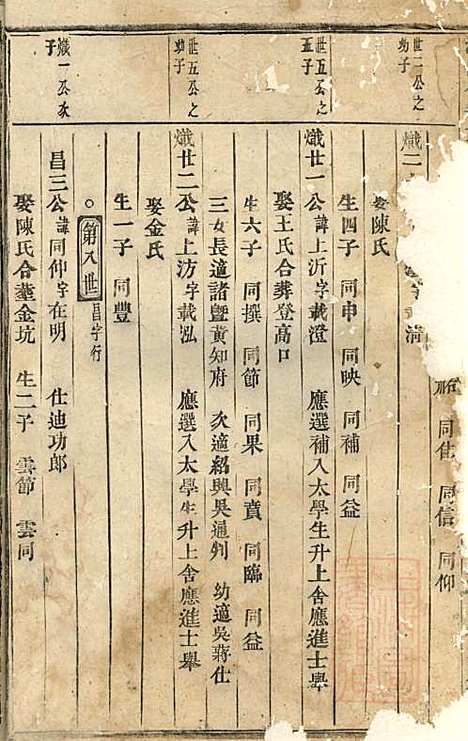 同佳 同信 同仰
世二公之
幼子
熾二
娶陳氏
生四子 同申 同映 同補 同益
世五公之
五子
熾廿一公諱上沂字載澄 應選補入太學生升上舍應進士舉
娶王氏合葬登高口
生六子 同撰 同節 同果 同賁 同臨 同益
三女長適諸暨黃知府 次適紹興吳通判 幼適吳蔣仕
世五公之
幼子
熾廿二公諱上汸字載泓 應選入太學生升上舍應進士舉
娶金氏
生一子 同豐
第八世 昌字行
熾一公次
子
昌三公諱同仲字在明 仕迪功郎
娶陳氏合葬金坑 生二子 雲節 雲同